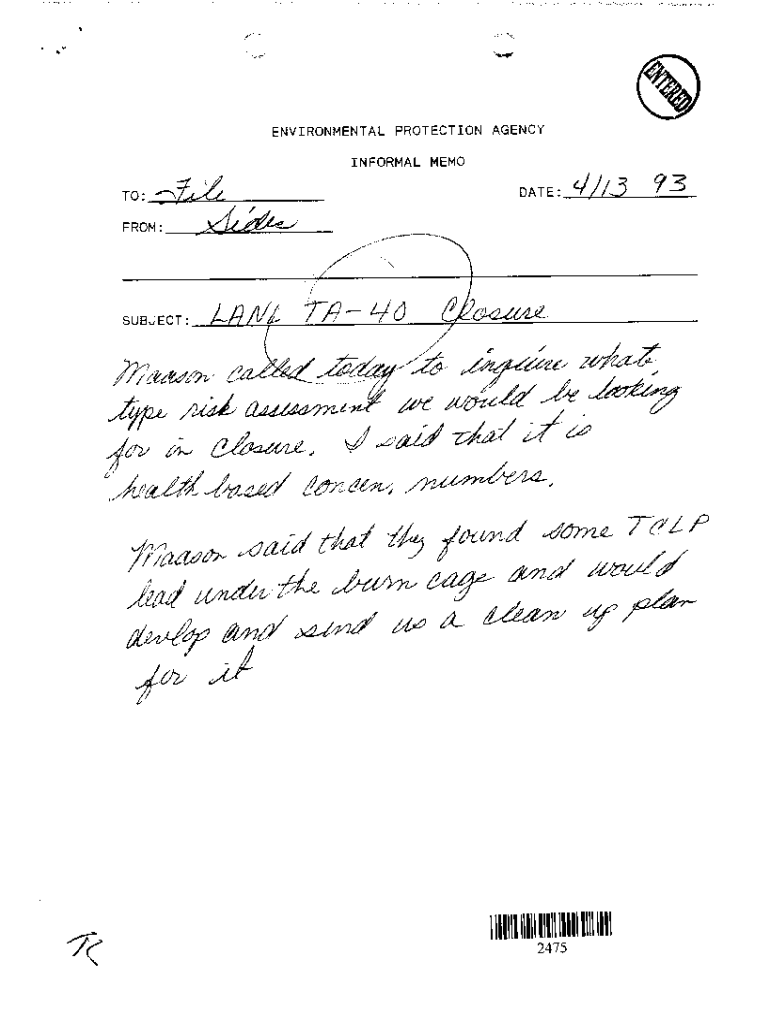 ENTERED
ENVIRONMENTAL PROTECTION AGENCY
INFORMAL MEMO
TO: File DATE: 4/13 93
FROM: Sides
SUBJECT: LANL TA-40 Closure
Maason called today to inquire what
type risk assessment we would be looking
for in closure. I said that it is
health based concen. numbers.
Maason said that they found some TCLP
lead under the burn cage and would
develop and send us a clean up plan
for it
TR
2475